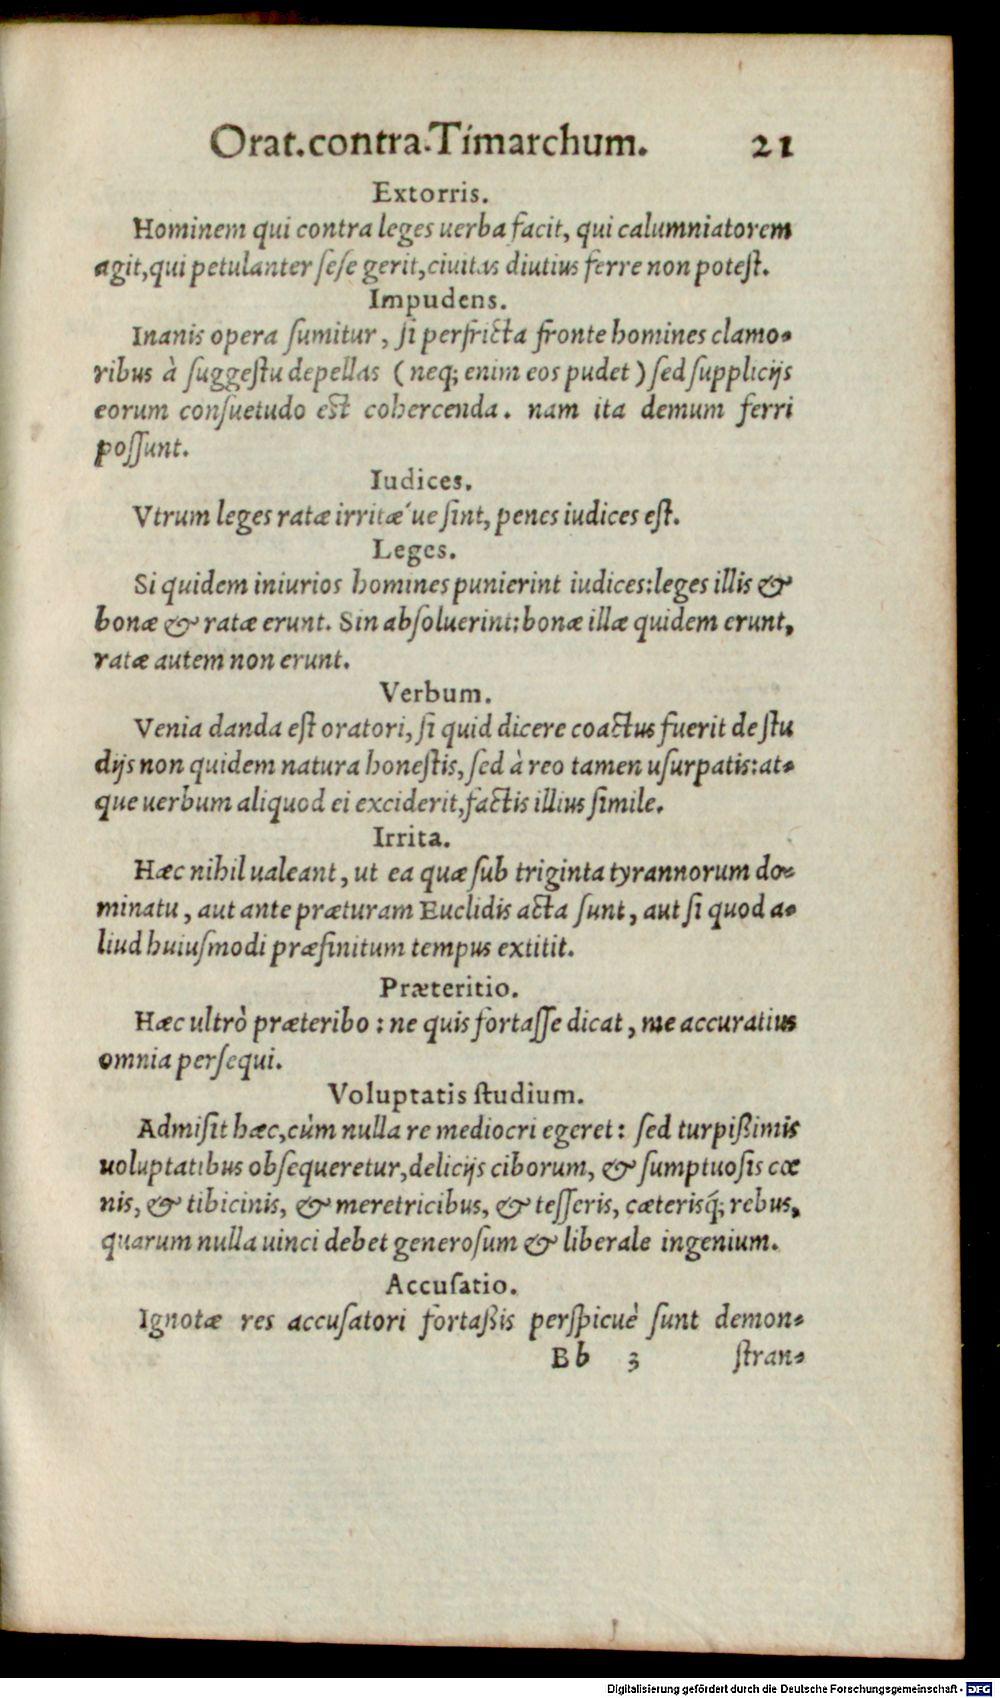 Orat.contra.Timarchum. 21
Extorris.
Hominem qui contra leges uerba facit, qui calumniatorem
agit,qui petulanter ſeſe gerit,ciuitas diutius ferre non poteſt.
Impudens.
Inanis opera ſumitur, ſi perfricta fronte homines clamo-
ribus à ſuggeſtu depellas (neq; enim eos pudet) ſed ſupplicijs
eorum conſuetudo est cohercenda. nam ita demum ferri
poſſunt.
Iudices.
Vtrum leges ratæ irritæ´ue ſint, penes iudices eſt.
Leges.
Si quidem iniurios homines punierint iudices:leges illis &
bonæ & ratæ erunt. Sin abſoluerint:bonæ illæ quidem erunt,
ratæ autem non erunt.
Verbum.
Venia danda eſt oratori, ſi quid dicere coactus fuerit de ſtu
dijs non quidem natura honeſtis, ſed à reo tamen uſurpatis:at-
que uerbum aliquod ei exciderit,factis illius ſimile.
Irrita.
Hæc nihil ualeant, ut ea quæ ſub triginta tyrannorum do-
minatu, aut ante præturam Euclidis acta ſunt, aut ſi quod a-
liud huiuſmodi præfinitum tempus extitit.
Præteritio.
Hæc ultrò præteribo: ne quis fortaſſe dicat, me accuratius
omnia perſequi.
Voluptatis ſtudium.
Admiſit hæc,cùm nulla re mediocri egeret: ſed turpißimis
uoluptatibus obſequeretur,delicijs ciborum, & ſumptuoſis cœ
nis, & tibicinis, & meretricibus, & teſſeris, cæterisq́; rebus,
quarum nulla uinci debet generoſum & liberale ingenium.
Accuſatio.
Ignotæ res accuſatori fortaßis perſpicuè ſunt demon-
Bb 3 ſtran-
Digitalisierung gefördert durch die Deutsche Forschungsgemeinschaft - DFG